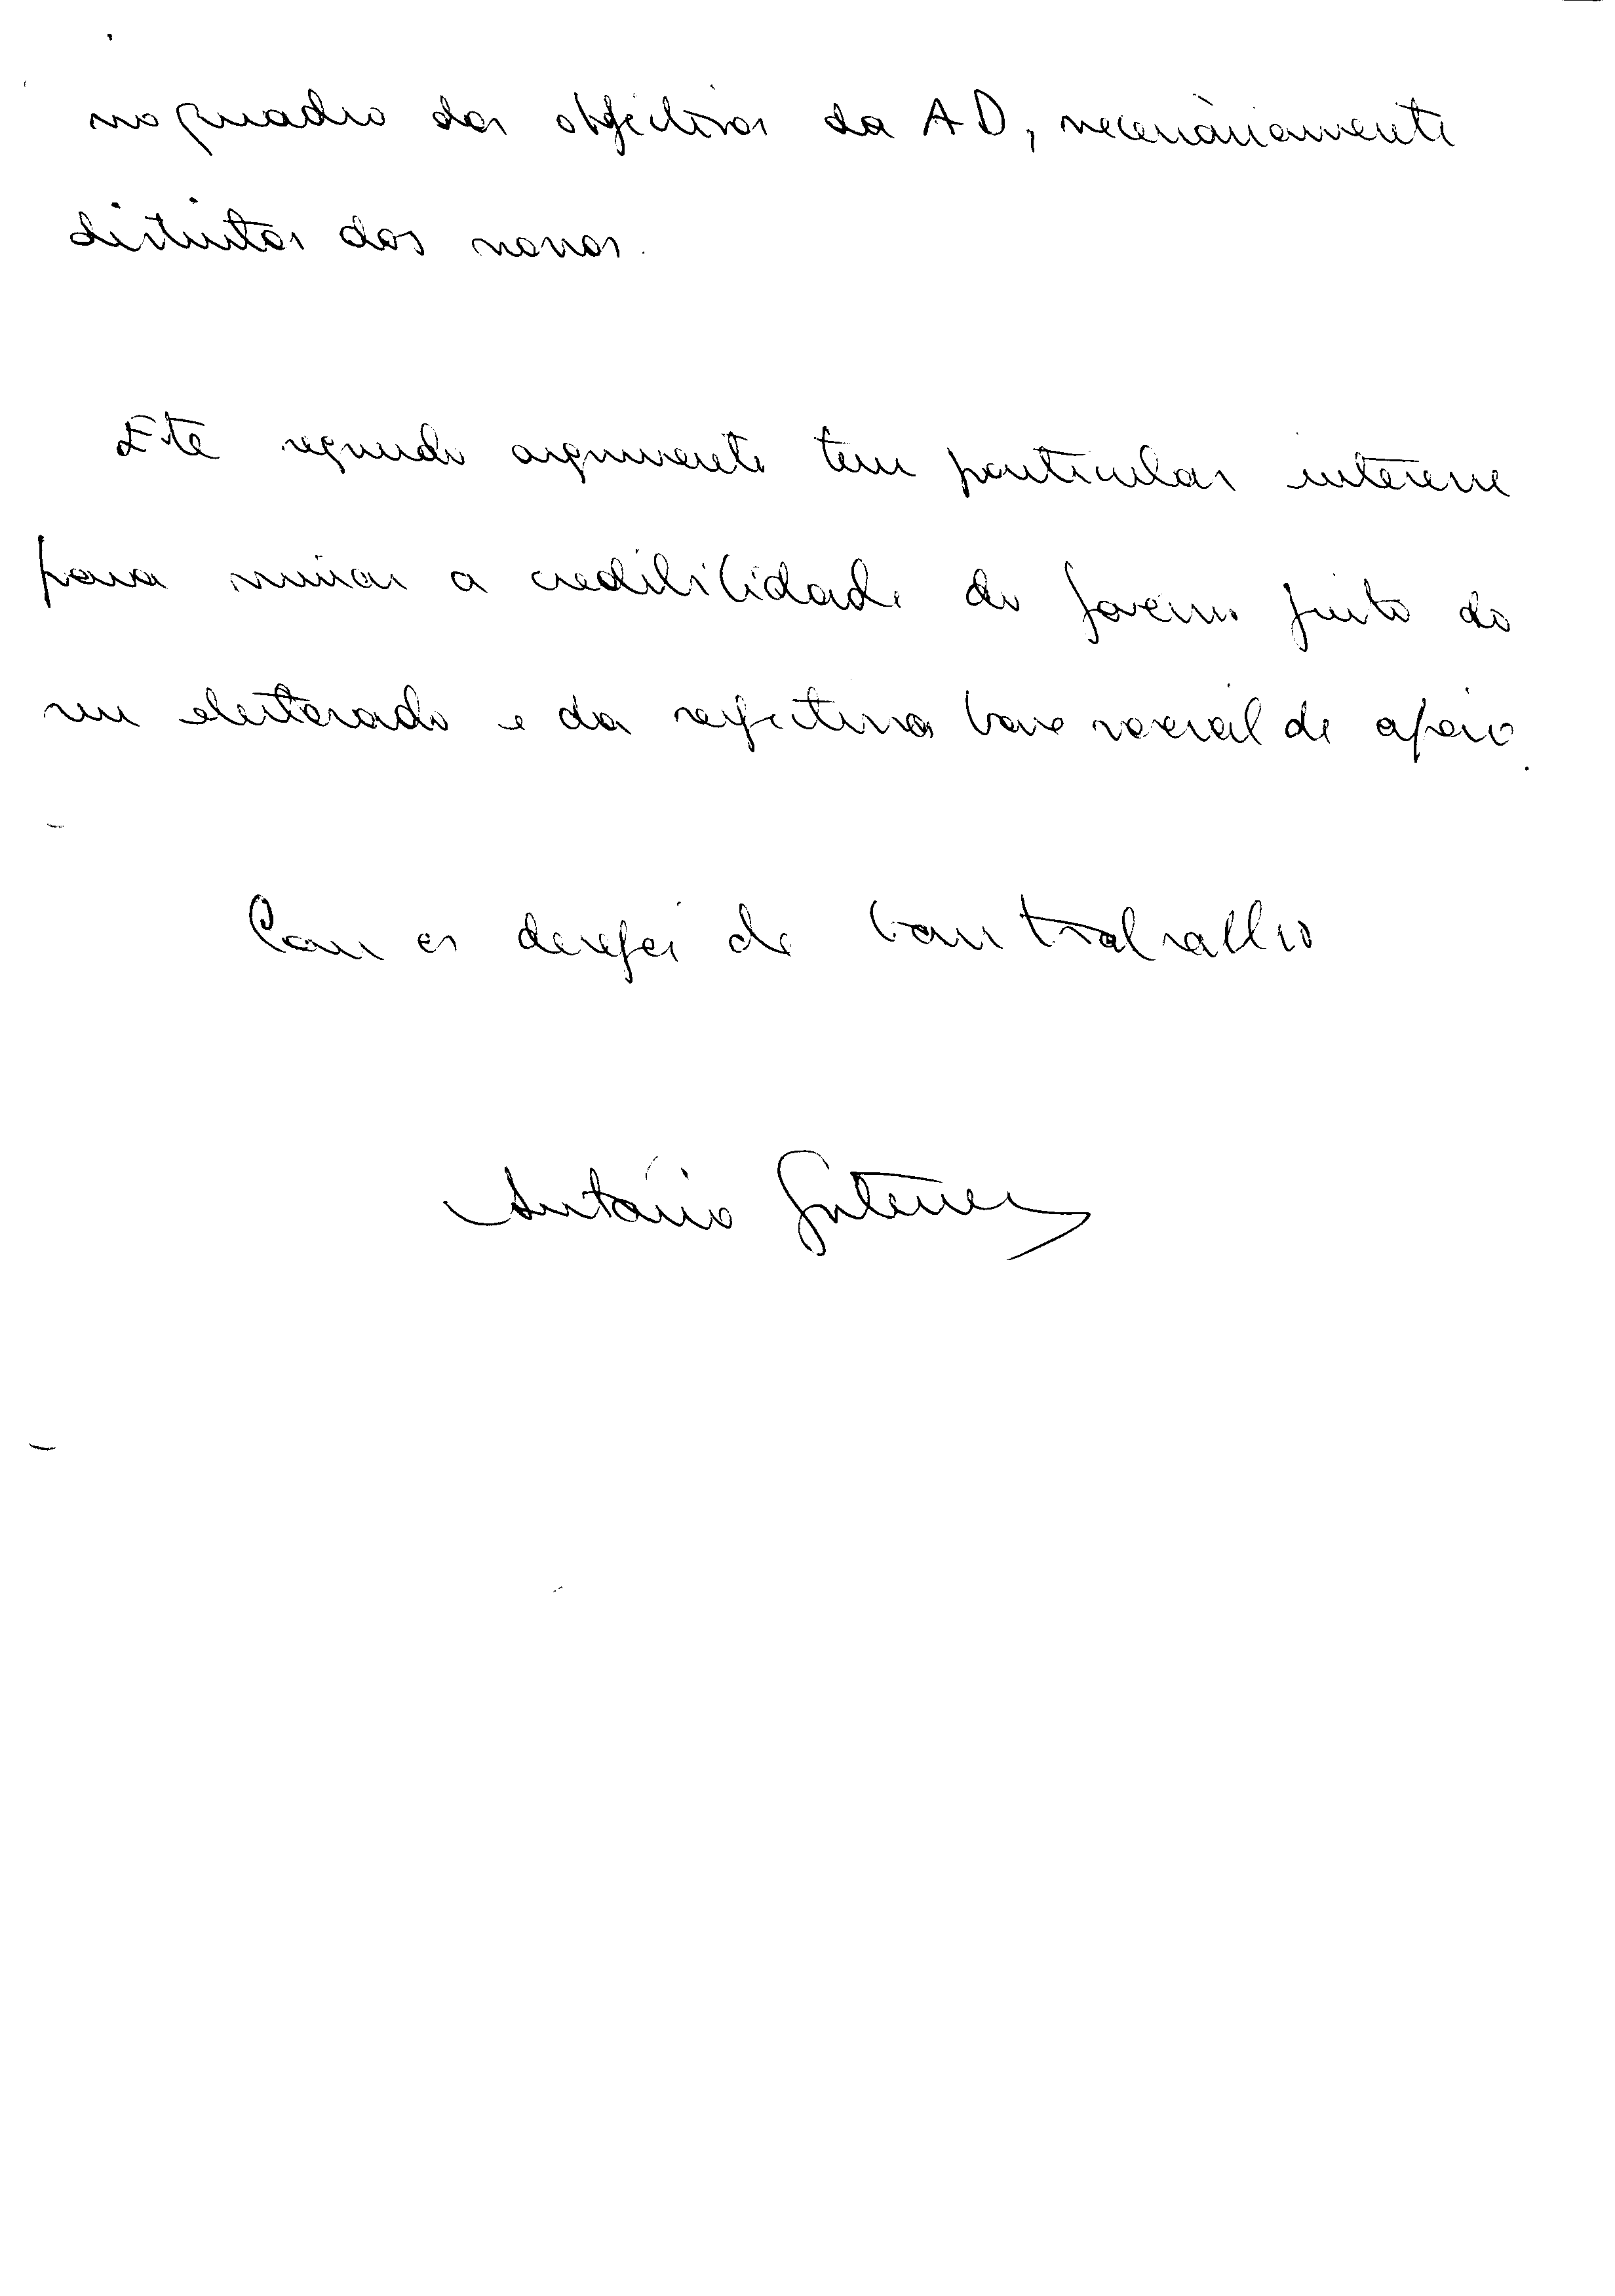 no quadro dos objectivos da AD, necessàriamente
distintos dos nossos.
Este segundo argumento tem particular interesse
para minar a credibilidade do governo junto do
seu eleitorado e da respectiva base social de apoio.
Com os desejos de bom trabalho
António Guterres